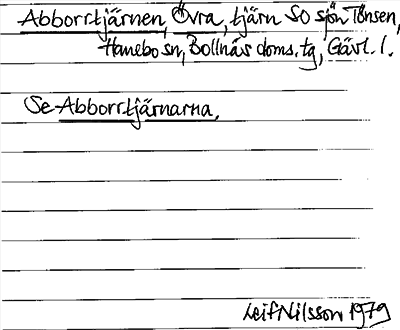 Abborrtjärnen, Övra, tjärn SO sjön Tönsen,
Hanebo sn, Bollnäs doms. tg, Gävl. l.
Se Abborrtjärnarna.
Leif Nilsson 1979